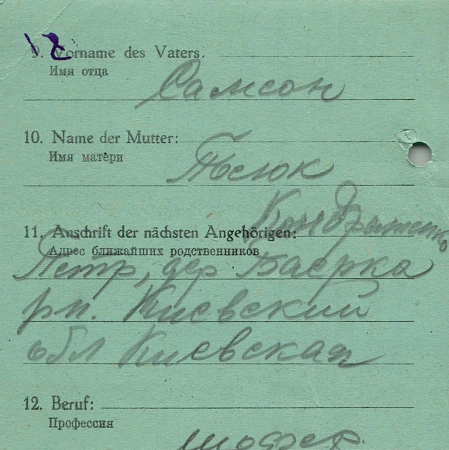 18
9. Vorname des Vaters.
Имя отца
Самсон
10. Name der Mutter:
Имя матери
Тъсюк
Кондратенко
11. Anschrift der nächsten Angehörigen:
Адрес ближайших родственников
Петр, дер Баерка
рн. Киевский
обл Киевская
12. Beruf:
Профессия
шофер